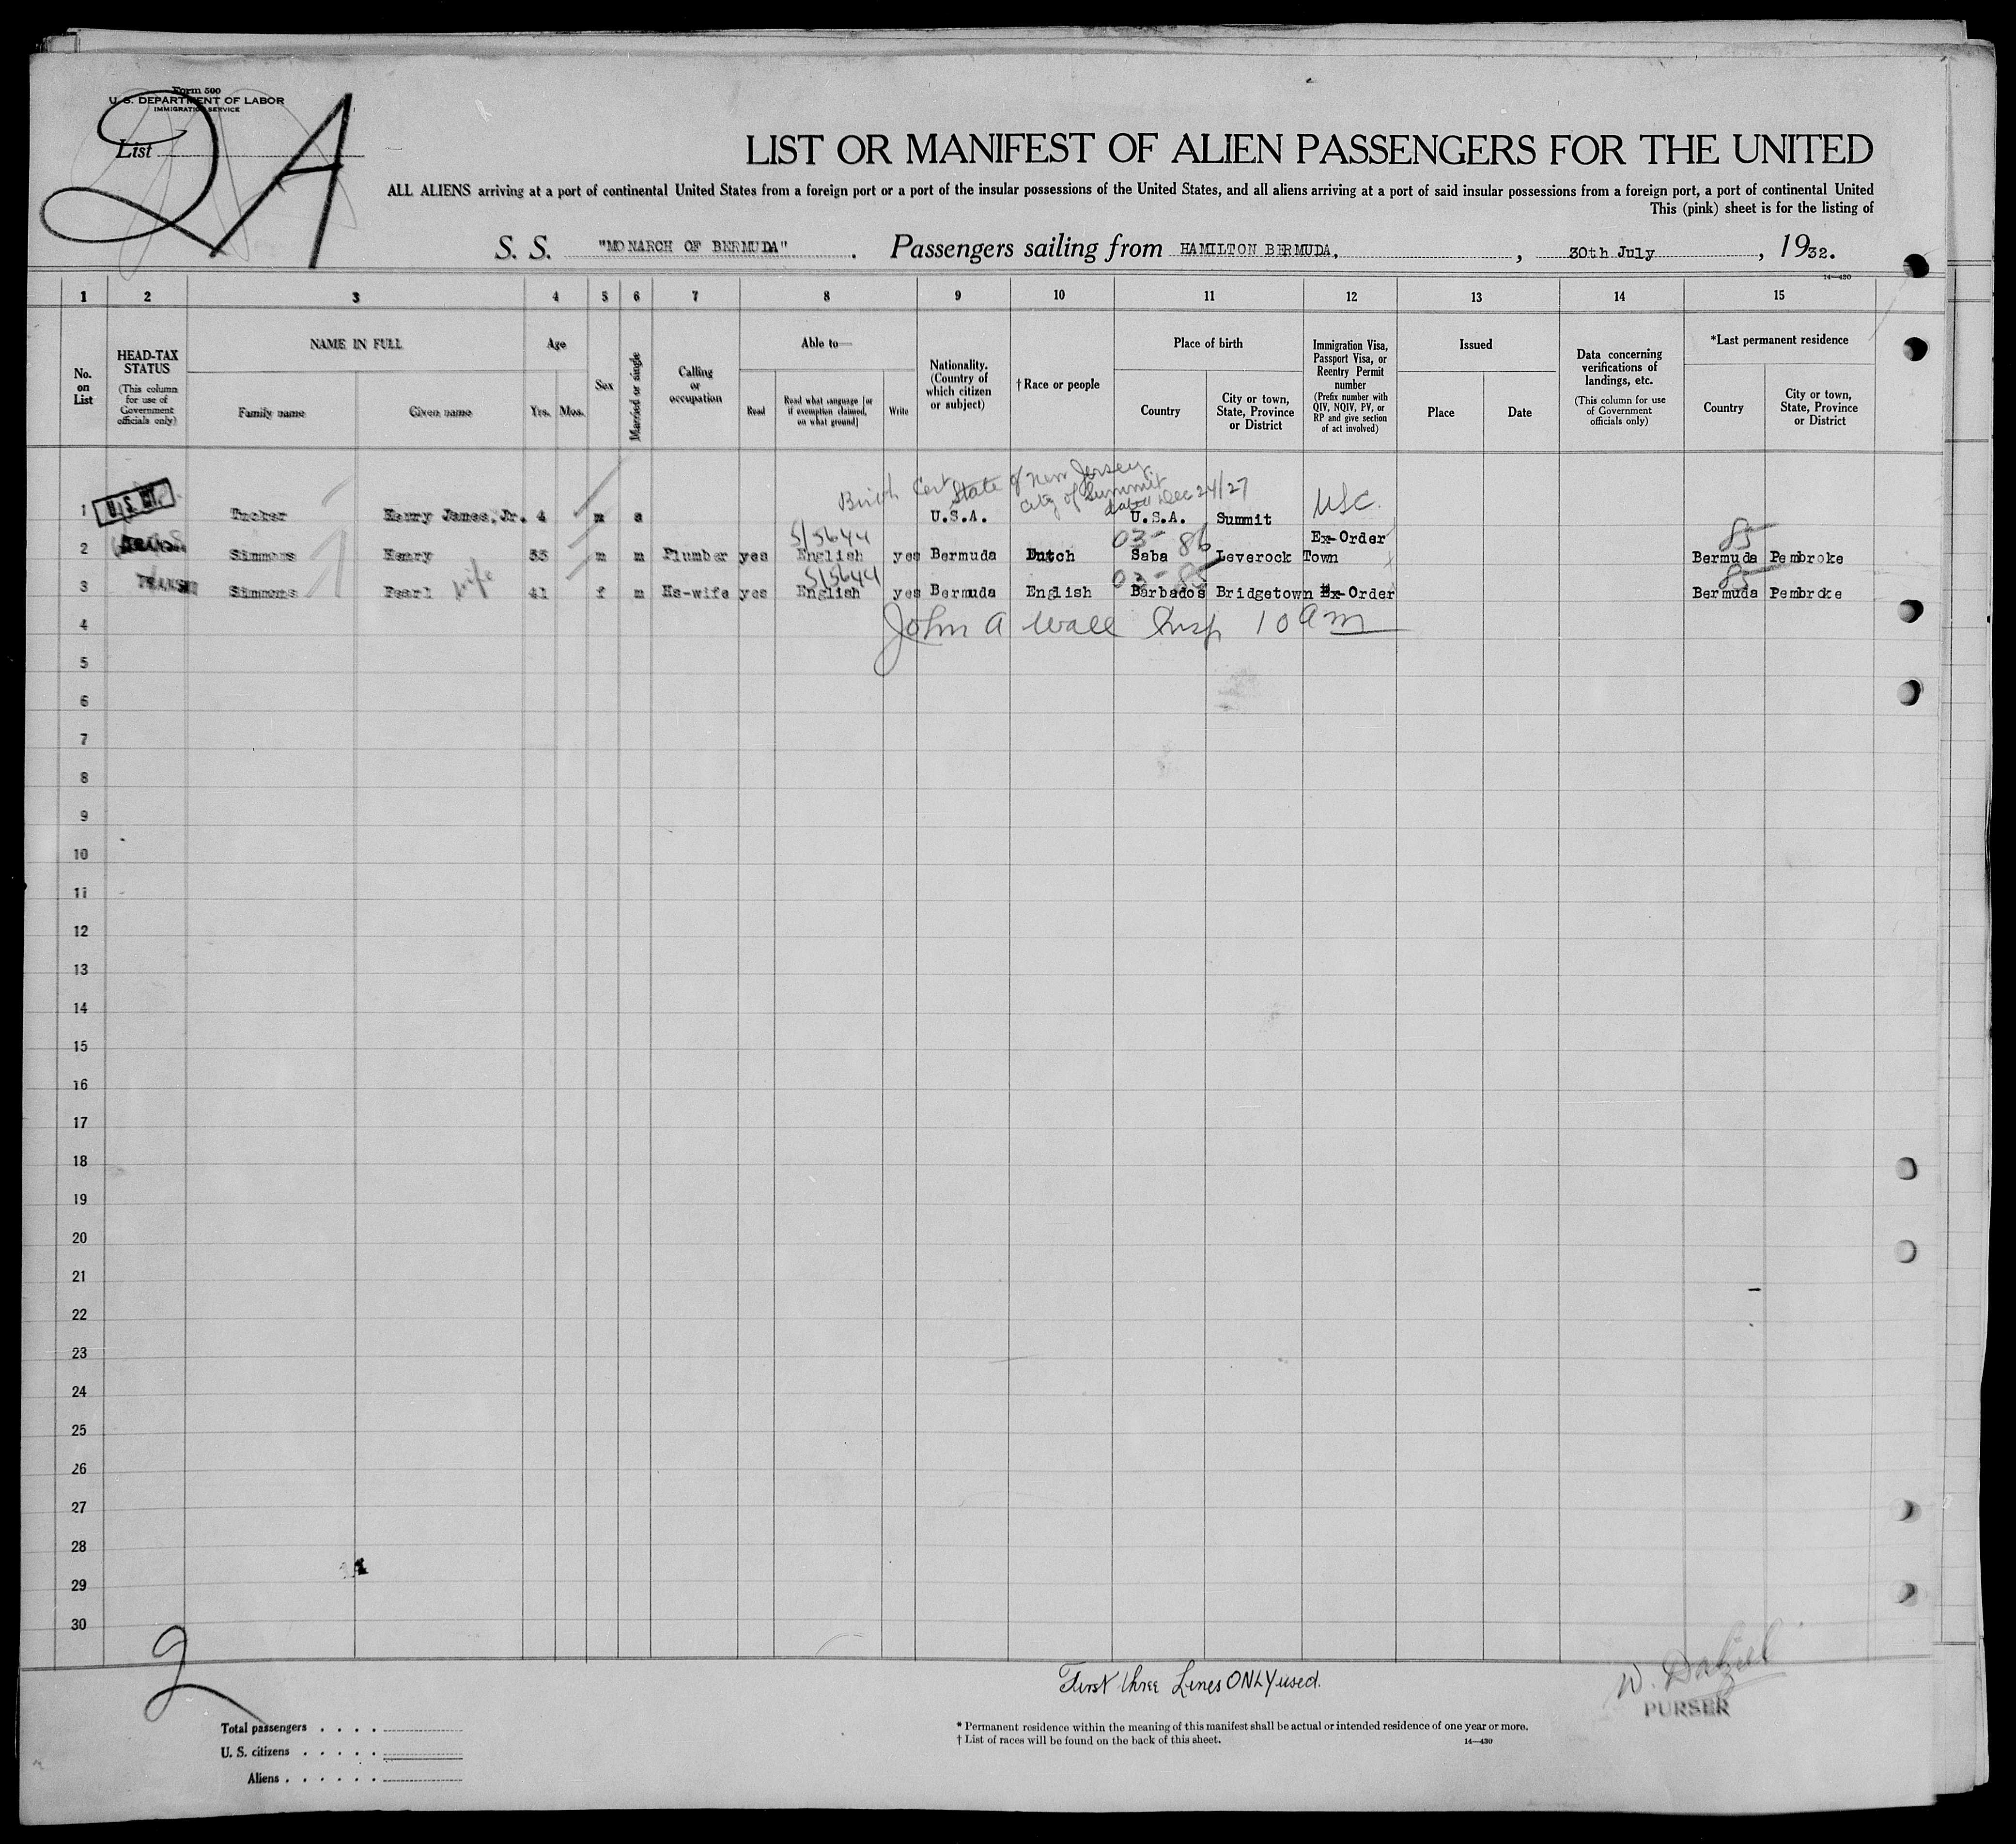 Form 500
U. S. DEPARTMENT OF LABOR
IMMIGRATION SERVICE
List
2A
LIST OR MANIFEST OF ALIEN PASSENGERS FOR THE UNITED
ALL ALIENS arriving at a port of continental United States from a foreign port or a port of the insular possessions of the United States, and all aliens arriving at a port of said insular possessions from a foreign port, a port of continental United
This (pink) sheet is for the listing of
S. S. "MONARCH OF BERMUDA". Passengers sailing from HAMILTON BERMUDA, , 30th July , 1932.
14—430
1 2 3 4 5 6 7 8 9 10 11 12 13 14 15
No. on List
HEAD-TAX STATUS
(This column for use of Government officials only)
NAME IN FULL
Family name
Given name
Age
Yrs. Mos.
Sex
Married or single
Calling or occupation
Able to—
Read
Read what language [or if exemption claimed, on what ground]
Write
Nationality. (Country of which citizen or subject)
†Race or people
Place of birth
Country
City or town, State, Province or District
Immigration Visa, Passport Visa, or Reentry Permit number
(Prefix number with QIV, NQIV, PV, or RP and give section of act involved)
Issued
Place
Date
Data concerning verifications of landings, etc.
(This column for use of Government officials only)
*Last permanent residence
Country
City or town, State, Province or District
Birth Cert State of New Jersey
City of Summit
dated Dec 24/27
1 U.S. CIT Tucker Henry James, Jr. 4 m s U.S.A. U.S.A. Summit USC
5/5644 03- 86 85
2 Simmons Henry 35 m m Plumber yes English yes Bermuda Dutch Saba Leverock Town Ex-Order Bermuda Pembroke
5/5644 03- 85 85
3 TRANSIT Simmons Pearl wife 41 f m Hs-wife yes English yes Bermuda English Barbados Bridgetown Ex-Order Bermuda Pembroke
4 John A Wall Insp 10 am
5
6
7
8
9
10
11
12
13
14
15
16
17
18
19
20
21
22
23
24
25
26
27
28
29
30
2
First three Lines ONLY used.
W. Dalziel
PURSER
Total passengers . . . .
U. S. citizens . . . . .
Aliens . . . . . .
* Permanent residence within the meaning of this manifest shall be actual or intended residence of one year or more.
† List of races will be found on the back of this sheet.
14—430